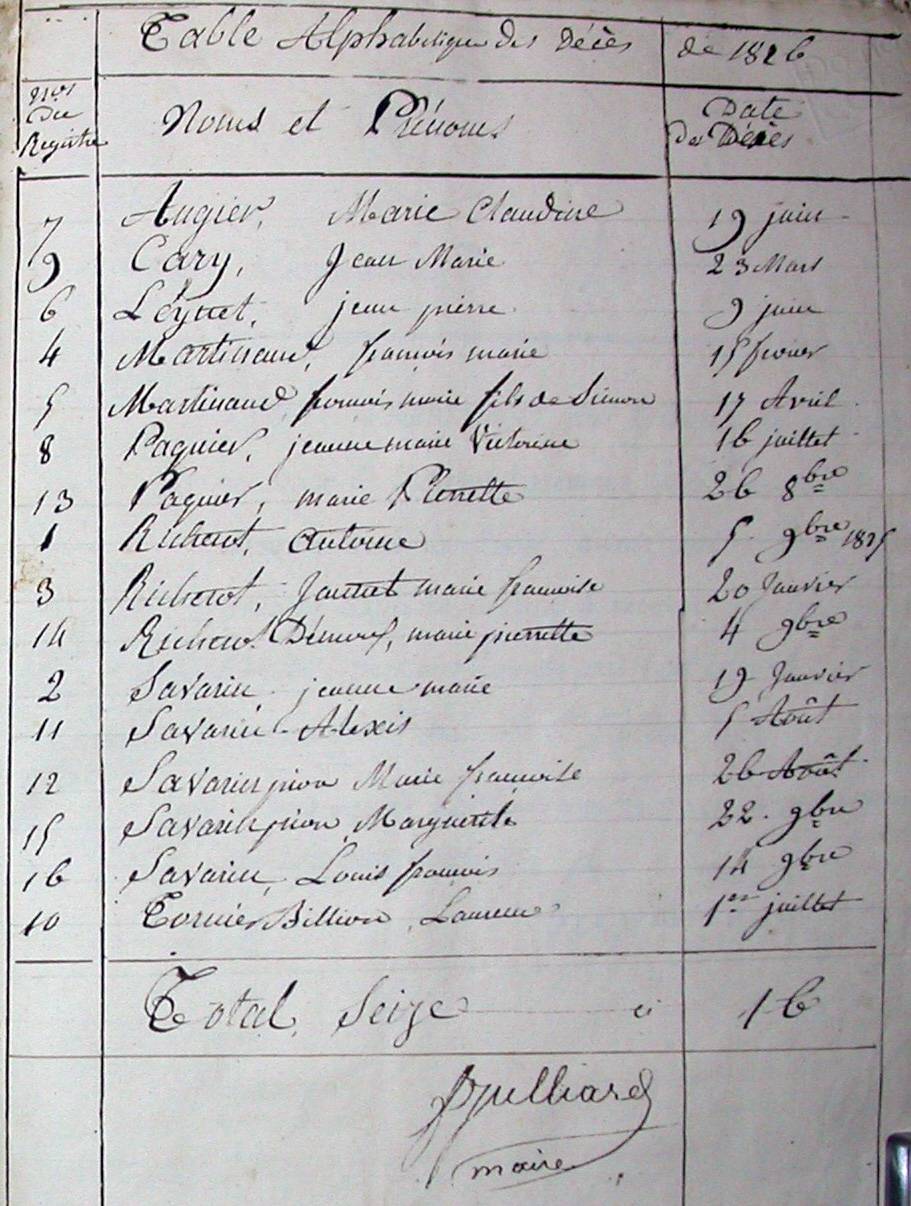 Table Alphabetique des Décès de 1826
Nos Du Registre Noms et Prénoms Date Des Décès
7 Augier, Marie Claudine 19 juin
9 Cary, Jean Marie 23 Mars
6 Léynet, jean pierre 9 juin
4 Martinand, françois marie 15 fevrier
5 Martinand françois marie fils de Simon 17 Avril
8 Paquier, jeanne marie Victorine 16 juillet
13 Paquier, marie Pierrette 26 8bre
1 Richerot, Antoine 5 9bre 1825
3 Richerot, Jannet marie françoise 20 Janvier
14 Richerot marie pierrette 4 9bre
2 Savarin jeanne marie 19 Janvier
11 Savarin Alexis 5 Août
12 Savarin pion Marie françoise 26 Août
15 Savarin pion Marguerite 22 9bre
16 Savarin, Louis françois 14 9bre
10 Tornier Billion, Laurent 1er juillet
Total, Seize ci 16
Julliard
maire